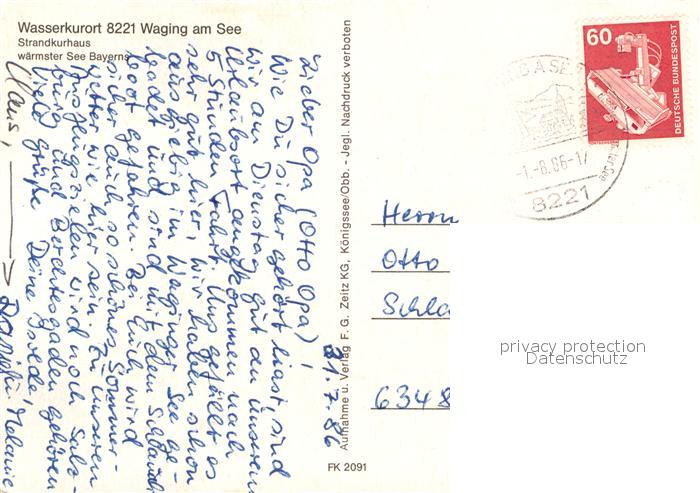 Wasserkurort 8221 Waging am See
Strandkurhaus
wärmster See Bayerns
31.7.86
Lieber Opa (Otto Opa)!
Wie Du sicher gehört hast, sind
wir am Dienstag gut an unserem
Urlaubsort angekommen nach
5 Stunden Fahrt. Uns gefällt es
sehr gut hier, wir haben schon
ausgiebig im Waginger See ge-
badet und sind mit dem Schlauch-
boot gefahren. Bei Euch wird
sicher auch so schönes Sommer-
wetter wie hier sein. Zu unseren
Ausflugszielen wird noch Salz-
burg und Berchtesgaden gehören
Viele Grüße Deine
Claus, Daniela, Melanie
Aufnahme u. Verlag F. G. Zeitz KG, Königssee/Obb. - Jegl. Nachdruck verboten
FK 2091
60
DEUTSCHE BUNDESPOST
-1.-8.86-17
8221
Herrn
Otto
Schla
6348
privacy protection
Datenschutz